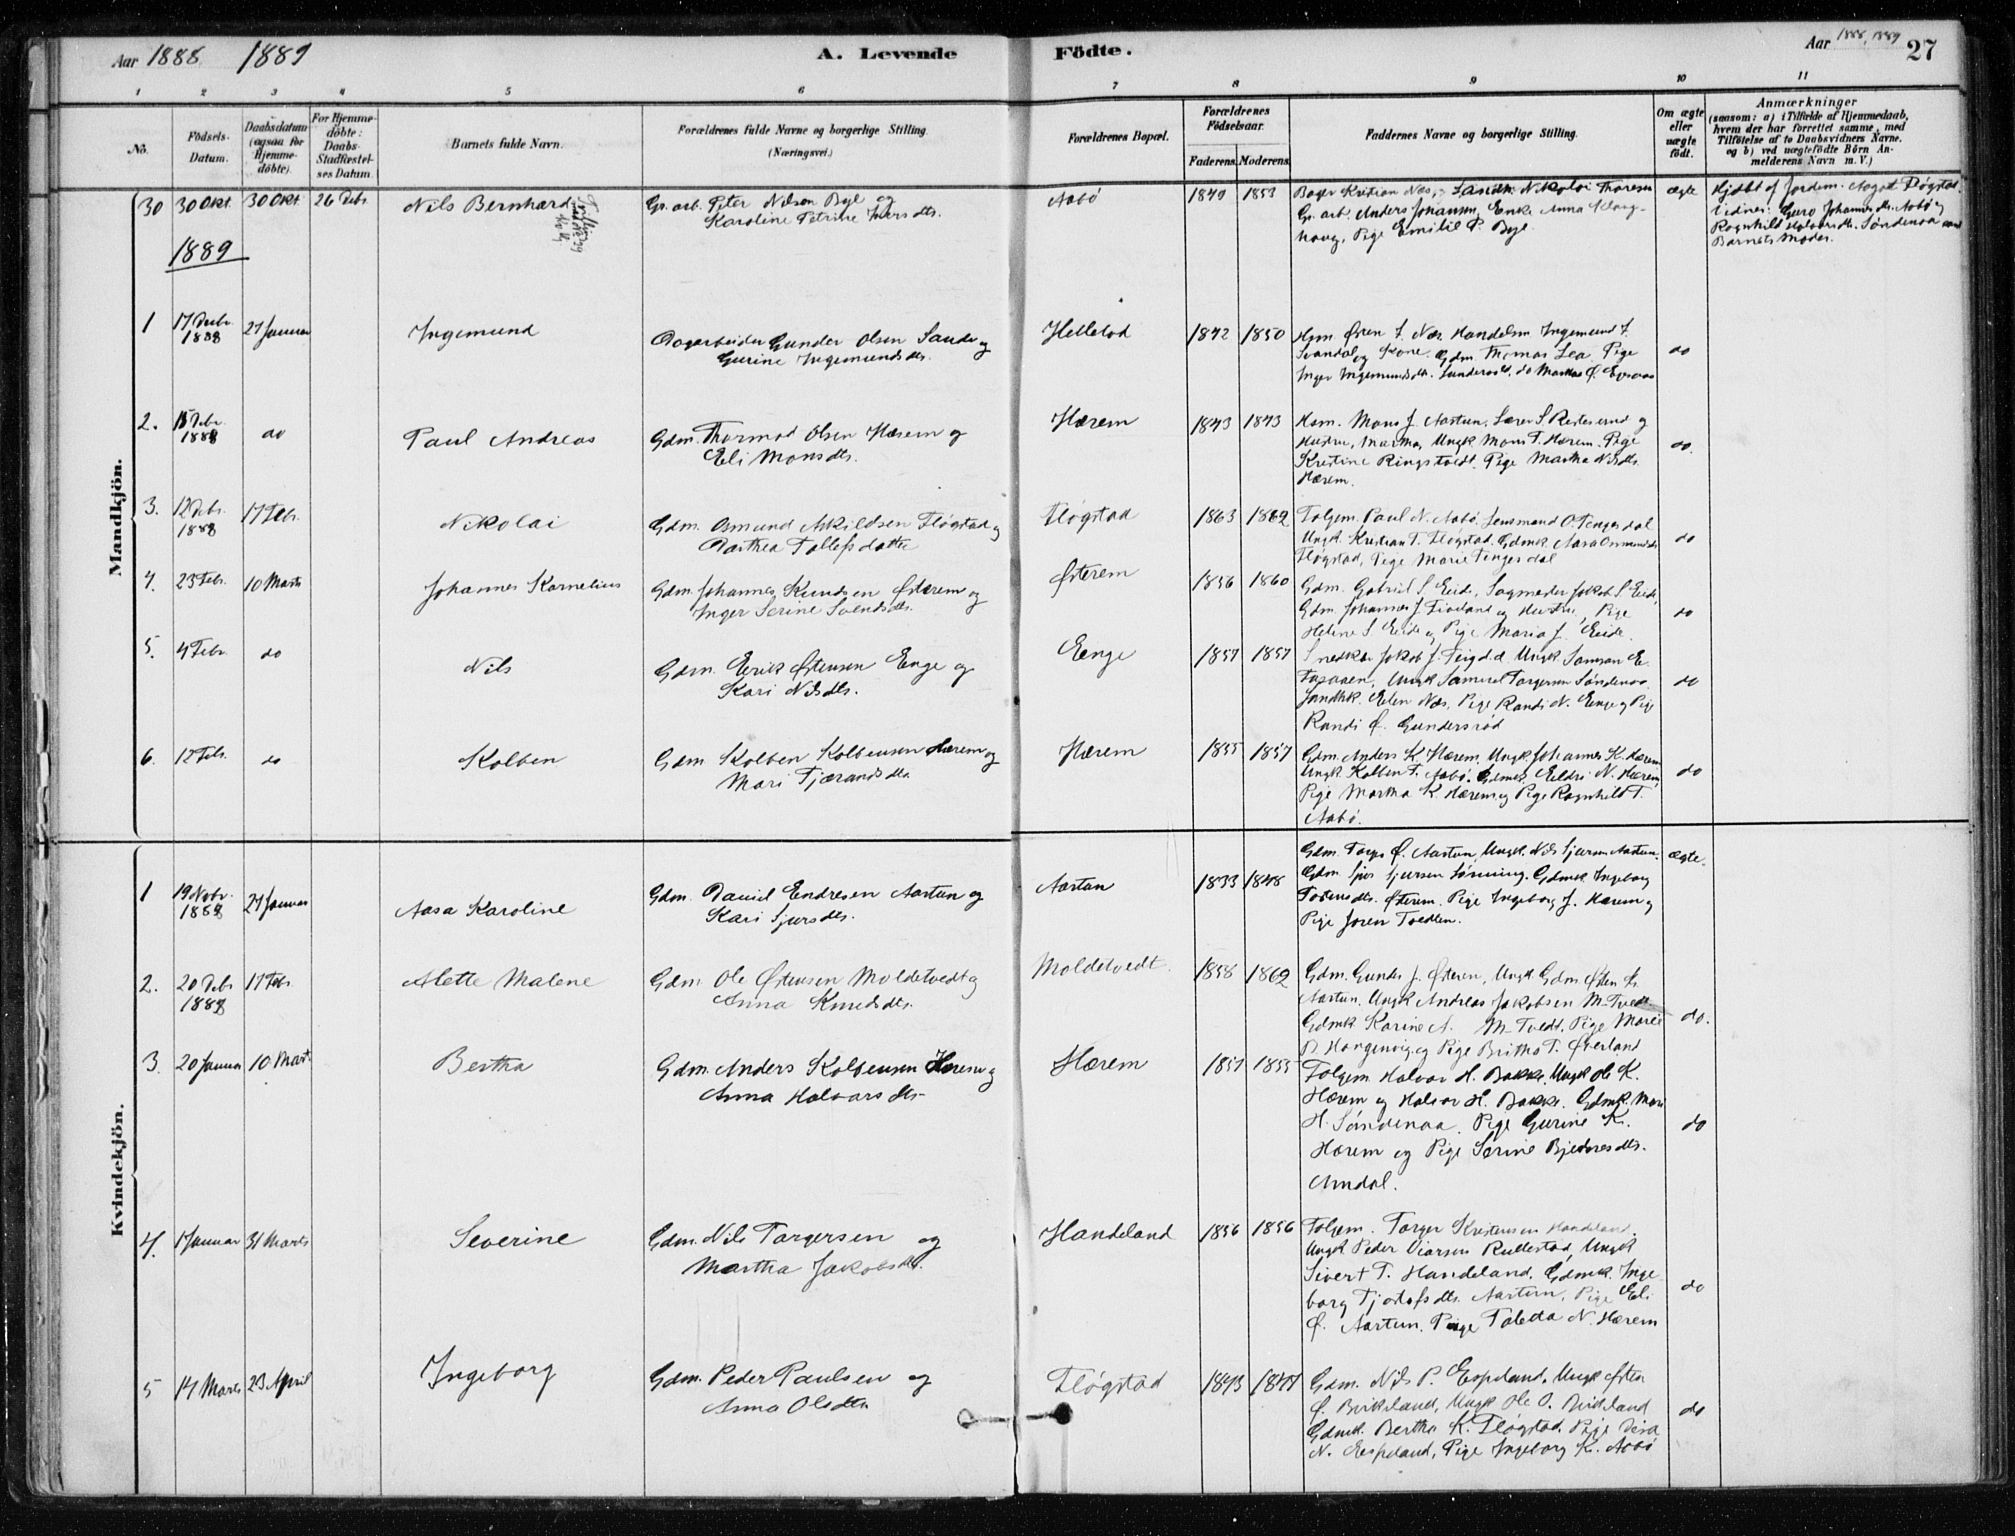 Aar 1888 1889
A. Levende
Födte.
Aar 1888, 1889
27
1 2 3 4 5 6 7 8 9 10 11
No.
Födsels-Datum.
Daabsdatum (ogsaa for Hjemme-döbte).
For Hjemme-döbte: Daabs-Stadfæstel-ses Datum
Barnets fulde Navn.
Forældrenes fulde Navne og borgerlige Stilling.
(Næringsvei.)
Forældrenes Bopæl.
Forældrenes Födselsaar.
Faderens. Moderens.
Faddernes Navne og borgerlige Stilling.
Om ægte eller uægte födt.
Anmærkninger
(saasom: a) i Tilfælde af Hjemmedaab,
hvem der har forrettet samme, med
Tilföielse af to Daabsvidners Navne.
og b) ved uægtefödte Börn An-
melderens Navn m. V.)
Mandkjön.
30 30 Okt. 30 Okt. 26 Debr. Nils Bernhard Gr. arb. Peter Nilsen Bye og
Karoline Petrine Iversdtr.
Aabø 1849 1853 Bager Kristian Næs, Landh. Nikolai Thorsen
Gr. arb. Anders Johansen, Enke Anna
Pige Emilie P. Bye.
ægte
Hjdøbt af Jordem. Aagot Fløgstad.
Vidner: Guro Johannesdtr. Aabø og
Ragnhild Halvorsdtr. Søndenaa samt
Barnets Moder.
1889
1 17 Decbr. 1888 27 Januar Ingemund Dagarbeider Gunder Olsen Sande og
Gurine Ingemundsdtr.
1842 1850 Hsm. Øren T. Næs, Handelsm. Ingemund T.
Svandal og Kone. Gdm. Thomas Lea. Pige
Inger Ingemundsdtr.
do
2. 15 Debr. 1888 do Paul Andreas Gdm. Thormod Olsen Hærem og
Eli Monsdtr.
Hærem 1843 1843 Hsm. Mons J. Aartun, Lærer S. og
Hustru, Martha, Ungk. Mons T. Hærem. Pige
Kristine Ringstvedt, Pige Martha Nilsdtr.
Hærem.
do.
3. 12 Debr. 1888 17 Febr. Nikolai Gdm. Osmund Askildsen Fløgstad og
Barthea Tollefsdatter
Fløgstad 1863 1862 Folgem. Paul N. Aabø. Lensmand O. Tengesdal
Ungk. Kristian T. Fløgstad. Gdmk. Aasa Osmundsdtr.
Fløgstad, Pige Marie Tengesdal
do
4. 23 Febr. 10 Marts Johannes Kornelius Gdm. Johannes Knudsen Østerem og
Inger Serine Svendsdtr.
Østerem 1856 1860 Gdm. Gabriel S. Eide, Sagmester Jakob S. Eide,
Gdm. Johannes J. og Hustru, Pige
Helene S. Eide og Pige Maria J. Eide.
do
5. 4 Febr. do Nils Gdm. Eerik Østensen Eenge og
Kari Nilsdtr.
Eenge 1857 1857 Snedker Jakob J. Ungk. Samson E.
Ungk. Samuel Torgersen Søndenaa
Elen Næs, Pige Randi N. Eenge og Pige
Randi Ø. Gundersrød
do
6. 12 Febr. do Kolben Gdm. Kolben Kolbensen Hærem og
Mari Tjærandsdtr.
Hærem 1855 1857 Gdm. Anders K. Hærem, Ungk. Johannes K. Hærem
Ungk. Kolben T. Aabø. Gdmk. Eldri N. Hærem,
Pige Martha K. Hærem og Pige Ragnhild T.
Aabø.
do
Kvindekjön.
1 19 Novbr. 1888 27 Januar Aasa Karoline Gdm. Daniel Endresen Aartun og
Kari Sjursdtr.
Aartun 1833 1848 Gdm. Torger Ø. Aartun, Ungk. Nils Sjursen Aartun.
Gdm. Sjur Sjursen Gdmk. Ingeborg
Østerem. Pige Ingeborg J. Hærem og
Pige Joren Tvedten.
ægte.
2. 20 Debr. 1888 17 Febr. Alette Malene Gdm. Ole Østensen Moldetvedt og
Anna Knudsdtr.
Moldetvedt. 1858 1862 Gdm. Gunder J. Østerem, Ungk. Gdm. Østen Ø.
Aartun. Ungk. Andreas Jakobsen M-Tvedt
Gdmk. Karine A. M-Tvedt. Pige Marie
og Pige Britha T. Øverland
do.
3. 20 Januar 10 Mart. Bertha Gdm. Anders Kolbensen Hærem og
Anna Halvorsdtr.
Hærem 1857 1855 Folgem. Halvor H. Bakke. Ungk. Ole K.
Hærem og Halvor H. Bakke. Gdmk. Mari
H. Søndenaa. Pige Gurine K.
Hærem og Pige Serine
Amdal.
do
4. 1 Januar 31 Marts Severine Gdm. Nils Torgersen og
Martha Jakobsdtr.
Handeland 1856 1856 Folgem. Torger Kristensen Handeland.
Ungk. Peder Rullestad, Ungk.
Sivert T. Handeland, Gdmk. Inge-
borg Tjodolfsdtr. Aartun, Pige Eli
Ø. Aartun. Pige Toleta N. Hærem
do
5 14 Marts 23 April Ingeborg Gdm. Peder Paulsen og
Anna Olsdtr.
Fløgstad 1843 1847 Gdm. Nils P. Espeland, Ungk. Østen
Ø. Birkeland, Ungk. Ole O. Birkeland
Gdmk. Bertha K. Fløgstad. Pige
N. Espeland, Pige Ingeborg K. Aabø
do